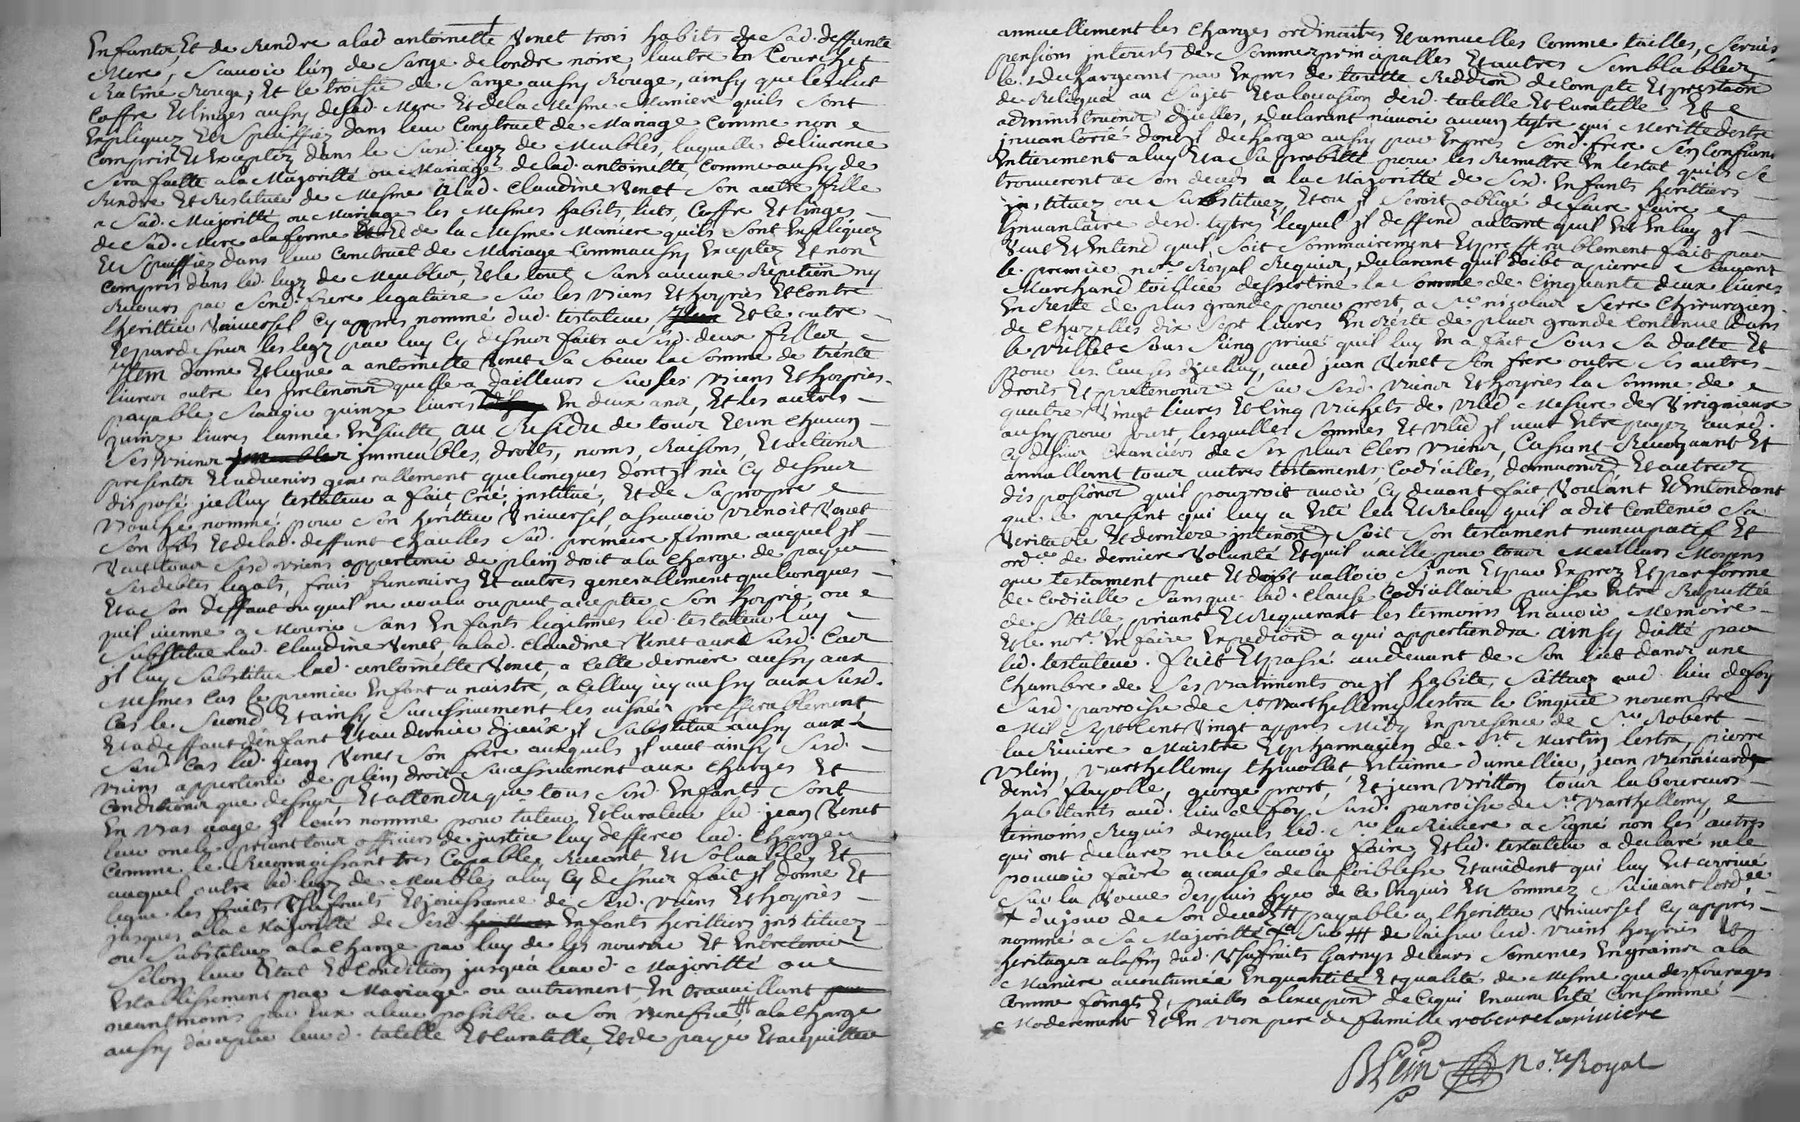 Enfants, Et de Rendre alad antoinette Venet trois habits de Sad. deffunte
Mere, Scavoir l'un de Sarge de londre noire, lautre
Ratine Rouge, Et le troisie de Sarge aussy Rouge, ainsy que les lict
Coffre Et linges aussy desad. Mere Et de la Mesme Maniere quils Sont
Expliquez Et Speciffiez dans leur Contract de Mariage Comme non
Compris Et Exceptez dans le Susd. legz de Meubles, laquelle delivrence
Sera faitte ala Majoritté ou Mariage delad. antoinette, Comme aussy de
Rendre Et Restituer de Mesme alad. Claudine Venet Son autre fille
a Sad. Majoritté ou Mariage les Mesmes habits, licts, Coffre Et linges
de Sad. Mere ala forme Et de la Mesme Maniere quils Sont Expliquez
Et Speciffiez dans leur Contract de Mariage Comme aussy Exceptez Et non
Compris dans led. legz de Meubles, Et le tout Sans aucune Repetion ny
Recours par Sond. frere legataire Sur les Biens Et hoyries Et Contre
lherittier Universel Cy appres nommé dud. testateur, Et le outre
Et par dessus les legz par luy Cy dessus faits a Sesd. deux filles
Item donne Et legue a antoinette Venet Sa Soeur la Somme de trente
livres outre les pretenons quelle a dailleurs Sur Ses Biens Et hoyries
payable Scavoir quinze livres En deux ans, Et les autres
quinze livres lannée Ensuitte, au Residu de tous Et un Chacun
Ses Biens Immeubles, droits, noms, Raisons, Et actions
presents Et advenirs generallement quelconques dont Il na Cy dessus
disposé, jcelluy testateur a fait, Créé, institué, Et de Sa propre
Bouche nommé pour Son herittier Universel, a Scavoir Benoit Venet
Son fils Et delad. deffunt Chaulles Sad. premiere femme auquel Il
Veut tous Sesd. Biens appartenir de plein droit ala Charge de payer
Sesdebtes legats, frais funeraires Et autres generallement quelconques
Et a Son deffaut ou quil ne voulu ou peut accepter Son hoyrie, ou
quil vienne a Mourir Sans Enfants legitimes led. testateur luy
Substitue lad. Claudine Venet, alad. Claudine Venet aux Susd. Cas
Il luy Substitue lad. antoinette Venet, a Cette derniere aussy aux
Mesmes Cas le premier Enfant a naistre, a Celluy icy aussy aux Susd.
Cas le Second Et ainsy Successivement les aisnés prefferablement
Et a deffaut denfant Et au dernier djceux Il Substitue aussy aux
Susd. Cas led. Jean Venet Son frere auxquels Il veut ainsy Sesd.
Biens appartenir de plein droit Successivement aux Charges Et
Conditions que dessus, Et attendu que tous Sesd Enfants Sont
En Bas aage Il leurs nomme pour tuteur Et Curateur led. jean Venet
leur oncle priant tous officiers de justice luy defferer lad. Charge
Comme le Reconnoissant tres Capable, Et Solvable, Et
auquel outre led. legz de Meubles aluy Cy dessus fait Il donne Et
legue les fruits Usufruits Et jouissance de Sesd. Biens Et hoyries
jusques ala Majoritté de Sesd. Enfants herittiers jnstituez
ou Substituez ala Charge par luy de les nourir Et Entretenir
Selon leur Estat Et Condition jusqua leurd. Majoritté ou
Establissement par Mariage ou autrement, En travaillant
neantmoins par Eux a leur possible a Son Benefice, ala Charge
aussy daccepter leurd. tutelle Et Curatelle, Et de payer Et acquitter
annuellement les Charges ordinaires Et annuelles Comme tailles, Servis,
pensions, interests de Sommes principalles Et autres Semblables,
le deschargeant par Expres de toutte Reddion de Compte Et prestaon
de Reliqua au Sujet Et aloccasion desd. tutelle Et Curatelle Et
administraons dicelles, declarant navoir aucun tiltre qui Meritte destre
jnvantorié dont Il decharge aussy par Expres Sond. frere Sen Confiant
Entierement aluy Et a Sa probitté pour les Remettre En lestat quils Se
trouveront a Son deceds a la Majoritté de Sesd. Enfants herittiers
jnstituez ou Substituez, Et ou Il Seroit obligé de faire faire
Invantaire desd. tiltres lequel Il deffend autant quil Est En luy Il
Veut Et Entend quil Soit Sommairement Et prefferablement fait par
le premier nore Royal Requis, declarant quil doibt a pierre
Marchand toillier despertine la Somme de Cinquante deux livres
En Reste de plus grande pour prest, a Sr. nicolas Serre Chirurgien
de Chazelles dix Sept livres En Reste de plus grande Contenue dans
le Billet Sous Seing privé quil luy En a fait Sous Sa datte Et
pour les Causes djcelluy, aud. jean Venet Son frere outre Ses autres
droits Et pretenons Sur Sesd. Biens Et hoyries la Somme de
quatre Vingt livres Et Cinq Bichets de Bled Mesure de Virigneux
aussy pour prest, lesquelles Sommes Et Bled Il veut Estre payez auxd.
Cy dessus Creanciers de Ses plus Clers Biens, Cassant Revoquant Et
annullant tous autres testaments, Codicilles, donnaons Et autres
disposions quil pourroit avoir Cy devant fait Voulant Et Entendant
que le present qui luy a Esté leu Et Releu quil a dit Contenir Sa
Veritable Et derniere jntenon Soit Son testament nuncupatif Et
ordce. de derniere Volunté Et quil vaille par tous Meilleurs Moyens
que testament peut Et doibt valloir Sinon Et par Expres Et par forme
de Codicille Sans que lad. Clause Codicillaire puisse Estre Reputtée
de Stille, priant Et Requerant les temoins En avoir Memoire
Et le nore. En faire Expedions a qui appartiendra ainsy dicté par
led. testateur. fait Et passé audevant de Son lict dans une
Chambre de Ses Batiments ou Il habite, Sittuez aud. lieu de foy
Susd. parroisse de St. Barthellemy lestra le Cinquie novembre
Mil Sept Cent Vingt appres Midy En presence de Sr. Robert
la Riviere Maistre Et pharmacien de St. Martin lestra, pierre
Blein, Barthellemy thivollet, Estienne dumellier, jean
denis fayolle, george prost, Et jean Britton tous laboureurs
habitants aud. lieu de foy Susd. parroisse de St. Barthellemy
temoins Requis desquels led. Sr. la Riviere a Signé non les autres
qui ont declarez ne le Scavoir faire Et led. testateur a declaré ne le
pouvoir faire a cause de la foiblesse Et accident qui luy Est arrivé
Sur la Veue despuis hyer de Ce Enquis Et Sommez Suivant lordce
+ du jour de Son deceds payable a lherittier Universel Cy appres
nommé a Sa Majoritté # de laisser lesd. Biens hoyries Et
heritages alafin dud. Usufruits Garnys de leurs Semences En grains a la
Maniere accoutumée En quantité Et qualité de Mesme que des fourages
Comme foings Et pailles alexception de Ce qui En aura Esté Consommé
Moderement Et En Bon pere de famille robert lariviere
Blein Nore Royal